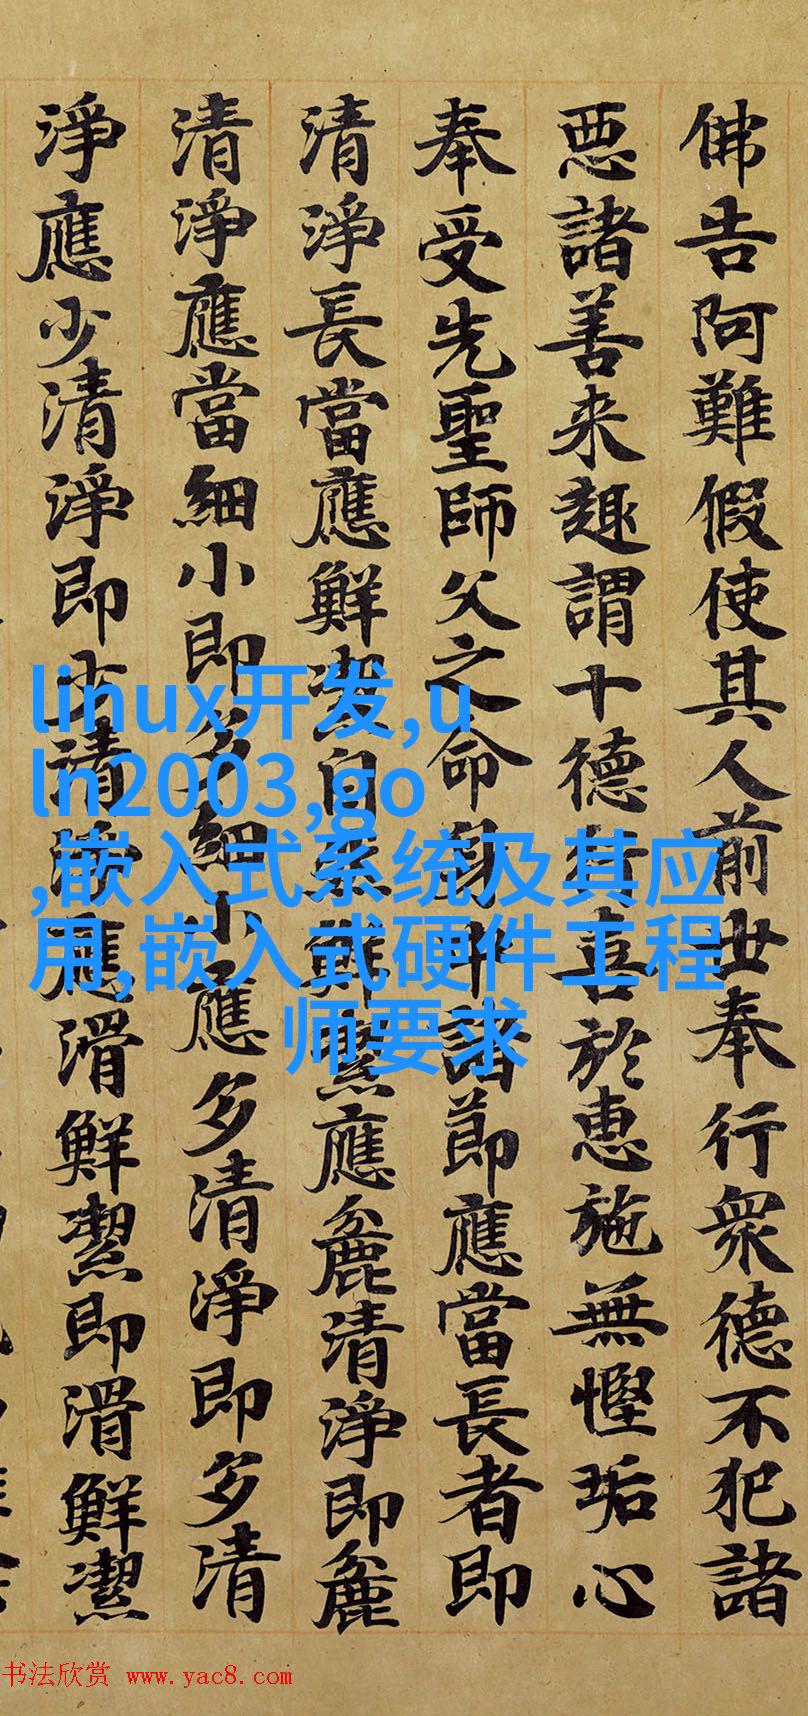 佛告阿難假使其人前世奉行衆德不犯諸
惡諸善来趣謂十德行喜於惠施無慳垢心
奉受先聖師父之命身中諸節應當長者即
清淨長當應鮮潔自然鮮潔應麁清淨即麁
清淨應當細小即多細小應多清淨即多清
淨應少清淨即少清淨應滑鮮潔即滑鮮潔
linux开发,u
ln2003,go
,嵌入式系统及其应
用,嵌入式硬件工程
师要求
书法欣赏 www.yac8.com